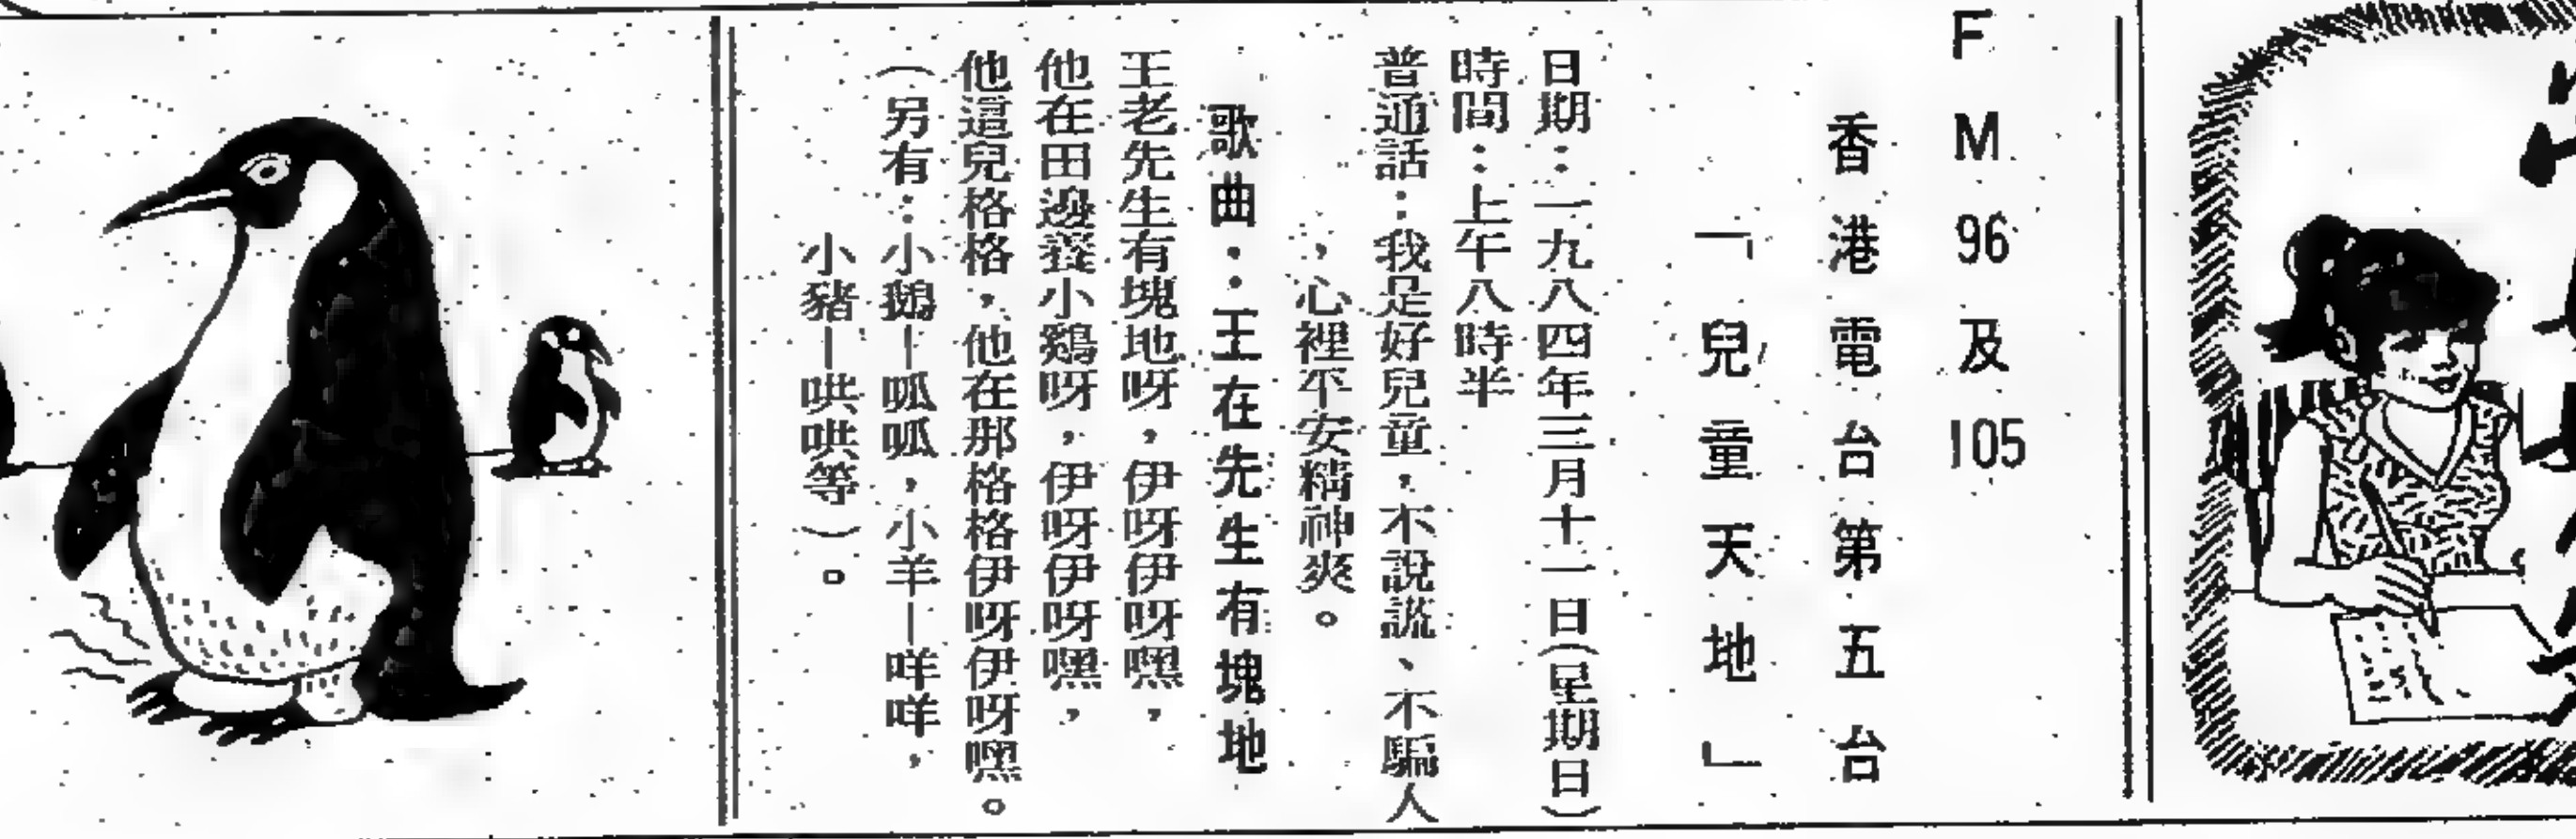 FM 96 及 105
香港電台第五台
「兒童天地」
日期：一九八四年三月十一日(星期日)
時間：上午八時半
普通話：我是好兒童，不說謊、不騙人
，心裡平安精神爽。
歌曲：王在先生有塊地
王老先生有塊地呀，伊呀伊呀嘿，
他在田邊養小鷄呀，伊呀伊呀嘿，
他這兒格格，他在那格格伊呀伊呀嘿。
（另有：小鵝—呱呱，小羊—咩咩，
小豬—哄哄等）。